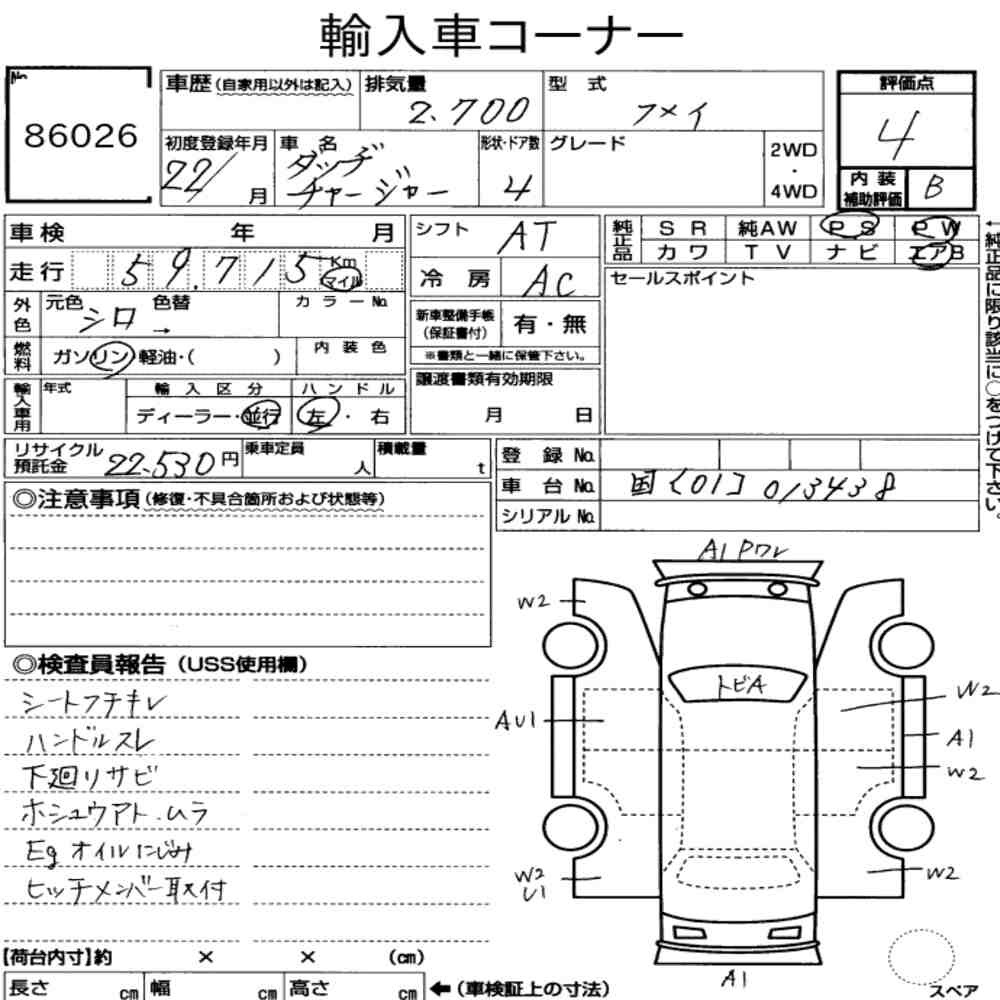 輸入車コーナー
No.
86026
車歴(自家用以外は記入) 排気量 2.700 型式 フメイ
評価点 4
初度登録年月 22/ 月 車名 ダッヂ チャージャー 形状・ドア数 4 グレード 2WD・4WD
内装補助評価 B
車検 年 月
走行 59.715 Km マイル
外色 元色 シロ 色替 → カラーNo.
燃料 ガソリン・軽油・( ) 内装色
輸入車用 年式 輸入区分 ディーラー・並行 ハンドル 左・右
シフト AT
冷房 AC
新車整備手帳(保証書付) 有・無
※書類と一緒に保管下さい。
譲渡書類有効期限
月 日
純正品 SR 純AW PS PW
カワ TV ナビ エアB
セールスポイント
←純正品に限り該当に○をつけて下さい。
リサイクル預託金 22.530円 乗車定員 人 積載量 t
登録No.
車台No. 国[01]013438
シリアルNo.
◎注意事項(修復・不具合箇所および状態等)
◎検査員報告(USS使用欄)
シートフチキレ
ハンドルスレ
下廻リサビ
ホシュウアト.ムラ
Eg オイルにじみ
ヒッチメンバー取付
A1 Pワレ
W2
トビA
AU1
W2
A1
W2
W2
U1
W2
A1
スペア
【荷台内寸】約 × × (cm)
長さ cm 幅 cm 高さ cm ←(車検証上の寸法)